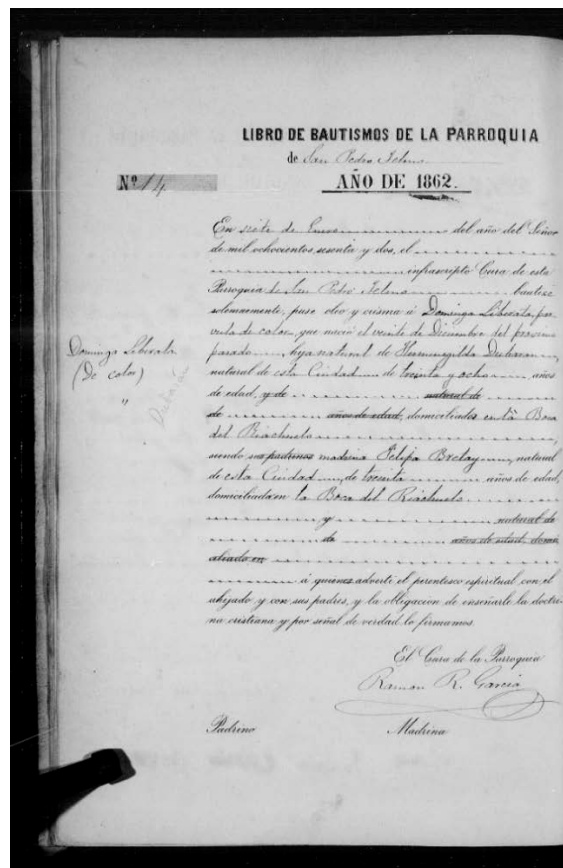 LIBRO DE BAUTISMOS DE LA PARROQUIA
de San Pedro Telmo
Nº 14
AÑO DE 1862.
En siete de Enero del año del Señor
de mil ochocientos sesenta y dos, el
infrascripto Cura de esta
Parroquia de San Pedro Telmo bautizé
solemnemente, puso oleo y crisma á Domingo Liberata, par
vula de color, que nació el veinte de Diciembre del proximo
pasado, hija natural de Hermenegilda
natural de esta Ciudad de treinta y ocho años
de edad, y de natural de
de años de edad, domiciliados en la Boca
del Riachuelo
siendo sus padrinos madrina Felipa Brclay, natural
de esta Ciudad, de treinta años de edad,
domiciliada en la Boca del Riachuelo
y natural de
de años de edad, domi
ciliado en
á quienes advertí el parentesco espiritual con el
ahijado y con sus padres, y la obligacion de enseñarle la doctri
na cristiana y por señal de verdad lo firmamos.
Domingo Liberata
(de color)
"
El Cura de la Parroquia
Ramon R. García
Padrino
Madrina